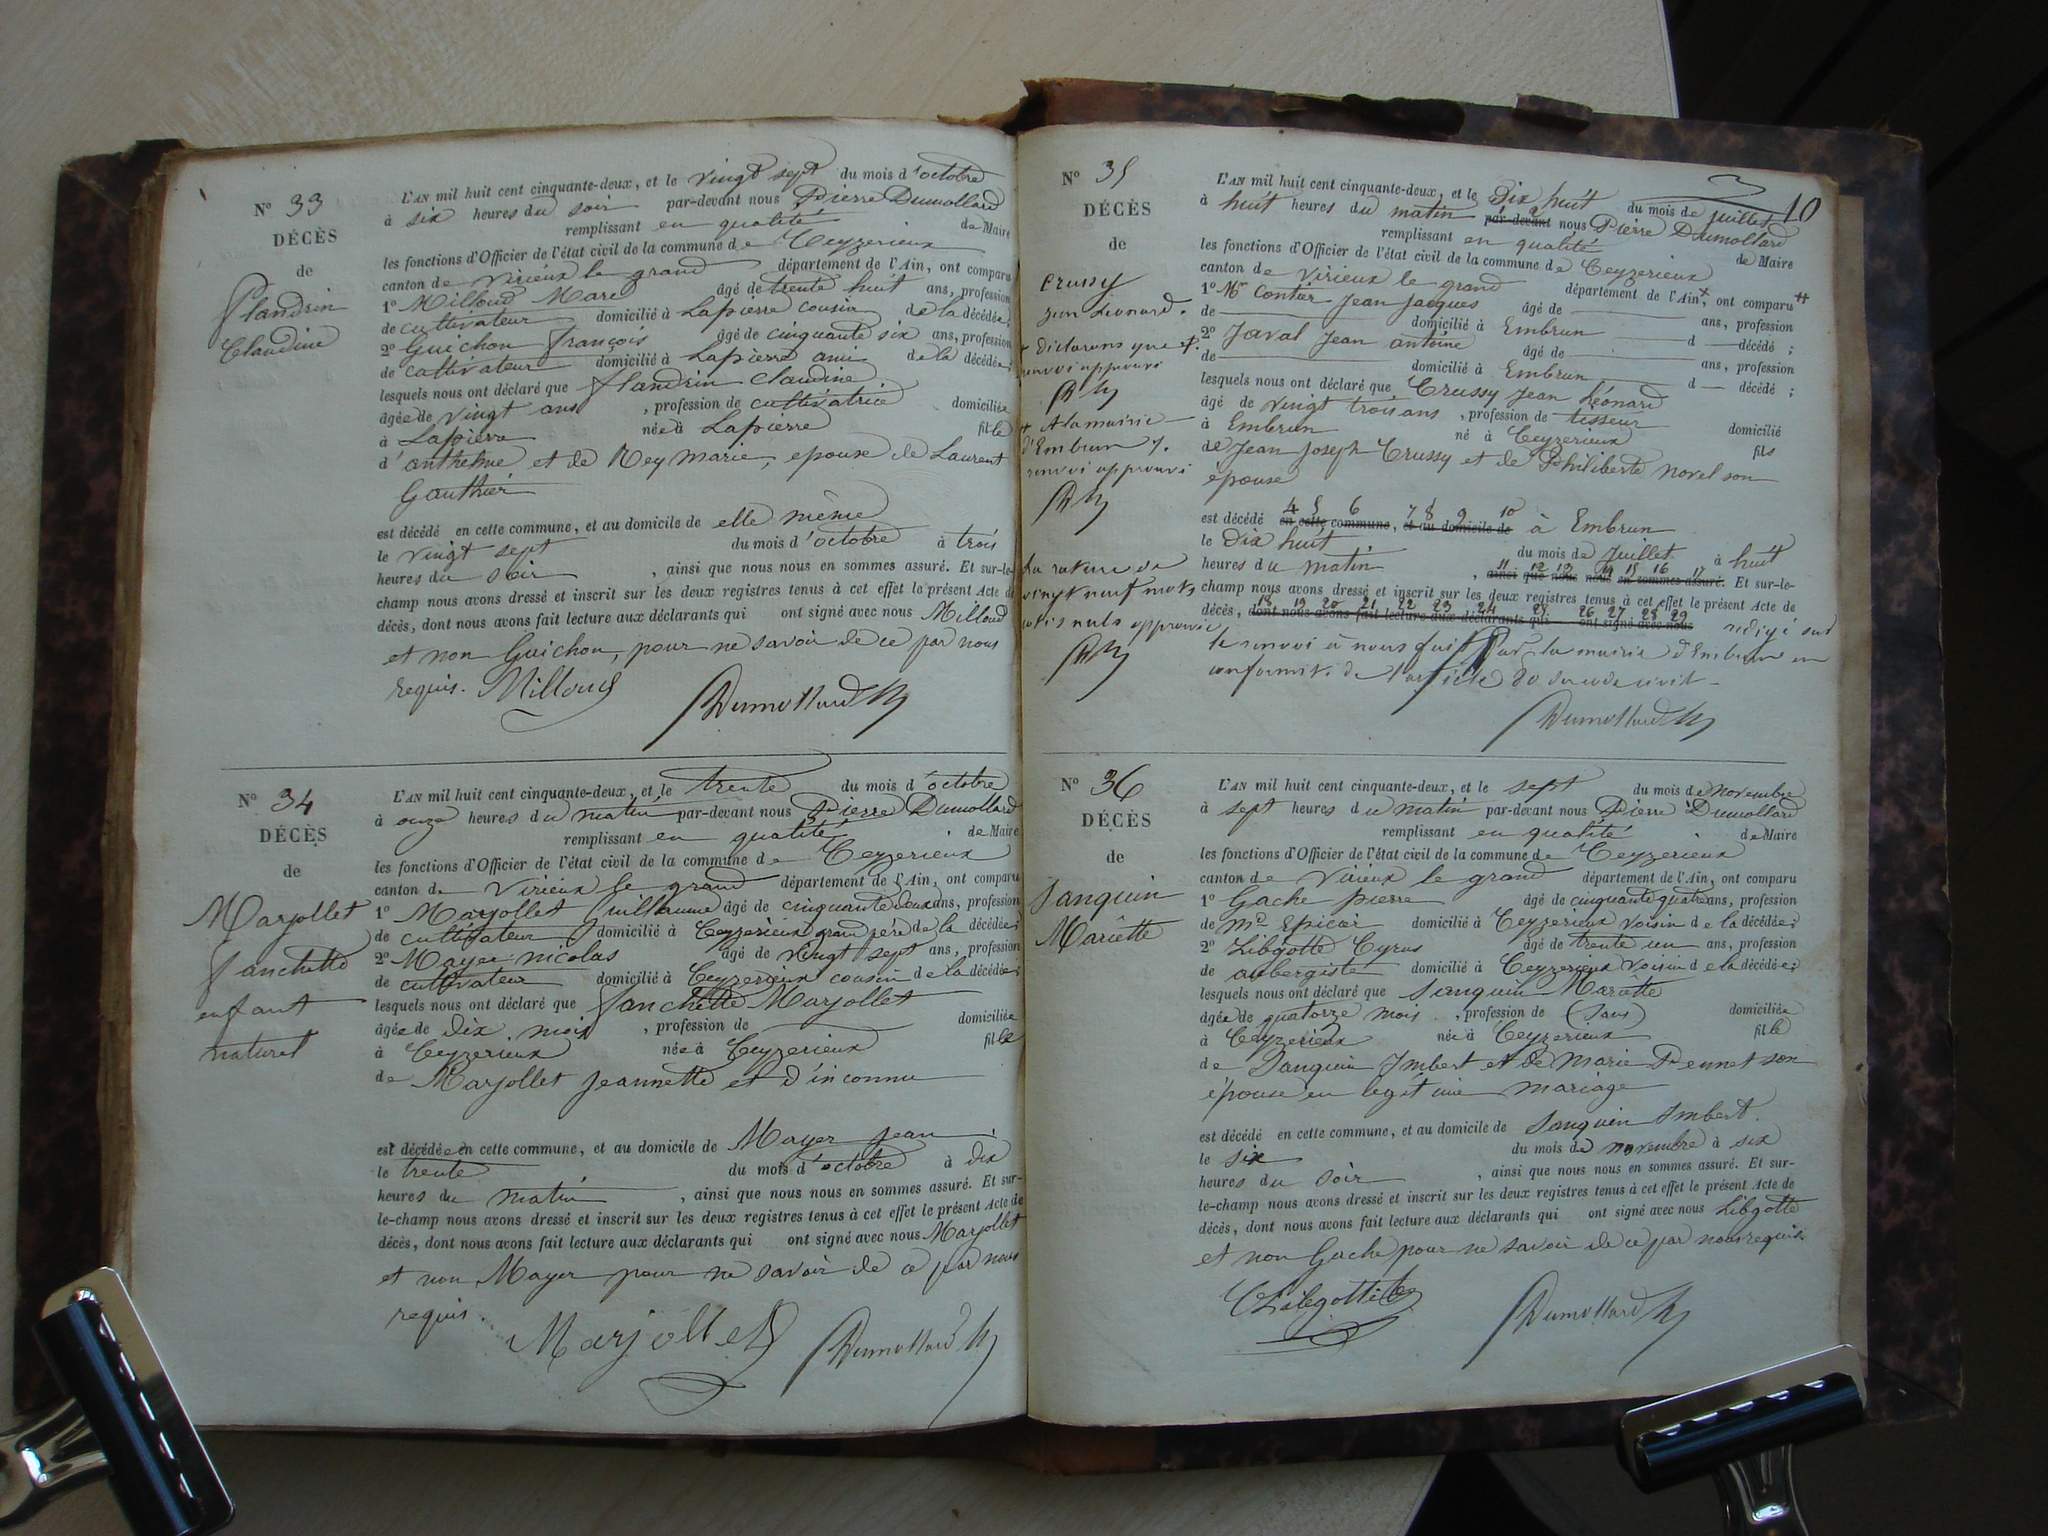 N° 33
DÉCÈS
de
Flandrin
Claudine
L'AN mil huit cent cinquante-deux, et le vingt sept du mois d'octobre
à six heures du soir par-devant nous Pierre Dumollard
remplissant en qualité de Maire
les fonctions d'Officier de l'état civil de la commune de Ceyzerieux
canton de Virieux le grand département de l'Ain, ont comparu
1° Milloud Marc âgé de trente huit ans, profession
de cultivateur domicilié à Lapierre cousin de la décédée;
2° Guichon françois âgé de cinquante six ans, profession
de cultivateur domicilié à Lapierre ami de la décédée;
lesquels nous ont déclaré que flandrin claudine
âgée de vingt ans, profession de cultivatrice domiciliée
à Lapierre née à Lapierre fille
d'anthelme et de Rey marie, epouse de Laurent
Gauthier
est décédé en cette commune, et au domicile de elle même
le vingt sept du mois d'octobre à trois
heures du soir, ainsi que nous nous en sommes assuré. Et sur-le-
champ nous avons dressé et inscrit sur les deux registres tenus à cet effet le présent Acte de
décès, dont nous avons fait lecture aux déclarants qui ont signé avec nous Milloud
et non Guichon, pour ne savoir de ce par nous
requis. Milloud
Dumollard
N° 34
DÉCÈS
de
Marjollet
fanchette
enfant
naturel
L'AN mil huit cent cinquante-deux, et le trente du mois d'octobre
à onze heures du matin par-devant nous Pierre Dumollard
remplissant en qualité de Maire
les fonctions d'Officier de l'état civil de la commune de Ceyzerieux
canton de Virieux le grand département de l'Ain, ont comparu
1° Marjollet Guillaume âgé de cinquante deux ans, profession
de cultivateur domicilié à Ceyzerieux grand père de la décédée;
2° Mayer nicolas âgé de vingt sept ans, profession
de cultivateur domicilié à Ceyzerieux cousin de la décédée;
lesquels nous ont déclaré que fanchette Marjollet
âgée de dix mois, profession de domiciliée
à Ceyzerieux née à Ceyzerieux fille
de Marjollet jeannette et d'inconnu
est décédée en cette commune, et au domicile de Mayer jean
le trente du mois d'octobre à dix
heures du matin, ainsi que nous nous en sommes assuré. Et sur-
le-champ nous avons dressé et inscrit sur les deux registres tenus à cet effet le présent Acte de
décès, dont nous avons fait lecture aux déclarants qui ont signé avec nous Marjollet
et non Mayer pour ne savoir de ce par nous
requis.
Marjollet Dumollard
10
N° 35
DÉCÈS
de
Crussy
jean Léonard.
+ déclarons que
renvoi approuvé
+ A la mairie
d'Embrun
renvoi approuvé
La rature de
vingt neuf mots
approuvée
L'AN mil huit cent cinquante-deux, et le Dix huit du mois de juillet
à huit heures du matin par-devant nous Pierre Dumollard
1 2
remplissant en qualité de Maire
les fonctions d'Officier de l'état civil de la commune de Ceyzerieux
canton de Virieux le grand département de l'Ain, ont comparu
1° Mr Contier Jean Jacques âgé de ans, profession
de domicilié à Embrun d décédé;
2° Javal Jean antoine âgé de ans, profession
de domicilié à Embrun d décédé;
lesquels nous ont déclaré que Crussy Jean Léonard
âgé de vingt trois ans, profession de tisseur domicilié
à Embrun né à Ceyzerieux fils
de Jean Joseph Crussy et de Philiberte Novel son
épouse
4 5 6 7 8 9 10
est décédé en cette commune, et au domicile de à Embrun
le dix huit du mois de Juillet à huit
11 12 13 14 15 16 17
heures du matin, ainsi que nous nous en sommes assuré. Et sur-le-
champ nous avons dressé et inscrit sur les deux registres tenus à cet effet le présent Acte de
18 19 20 21 22 23 24 25 26 27 28 29
décès, dont nous avons fait lecture aux déclarants qui ont signé avec nous rédigé sur
le renvoi à nous fait par la mairie d'Embrun en
conformité de l'article 80 du code civil
Dumollard
N° 36
DÉCÈS
de
Sanguin
Mariette
L'AN mil huit cent cinquante-deux, et le sept du mois de novembre
à sept heures du matin par-devant nous Pierre Dumollard
remplissant en qualité de Maire
les fonctions d'Officier de l'état civil de la commune de Ceyzerieux
canton de Virieux le grand département de l'Ain, ont comparu
1° Gache pierre âgé de cinquante quatre ans, profession
de Md Epicier domicilié à Ceyzerieux voisin de la décédée;
2° Libgotte Cyrus âgé de trente un ans, profession
de aubergiste domicilié à Ceyzerieux voisin de la décédée;
lesquels nous ont déclaré que Sanguin Mariette
âgée de quatorze mois, profession de (Sans) domiciliée
à Ceyzerieux née à Ceyzerieux fille
de Sanguin Imbert et de Marie Pennet son
épouse en legitime mariage
est décédé en cette commune, et au domicile de Sanguin Imbert.
le six du mois de novembre à six
heures du soir, ainsi que nous nous en sommes assuré. Et sur-
le-champ nous avons dressé et inscrit sur les deux registres tenus à cet effet le présent Acte de
décès, dont nous avons fait lecture aux déclarants qui ont signé avec nous Libgotte
et non Gache pour ne savoir de ce par nous requis.
Libgotte Dumollard